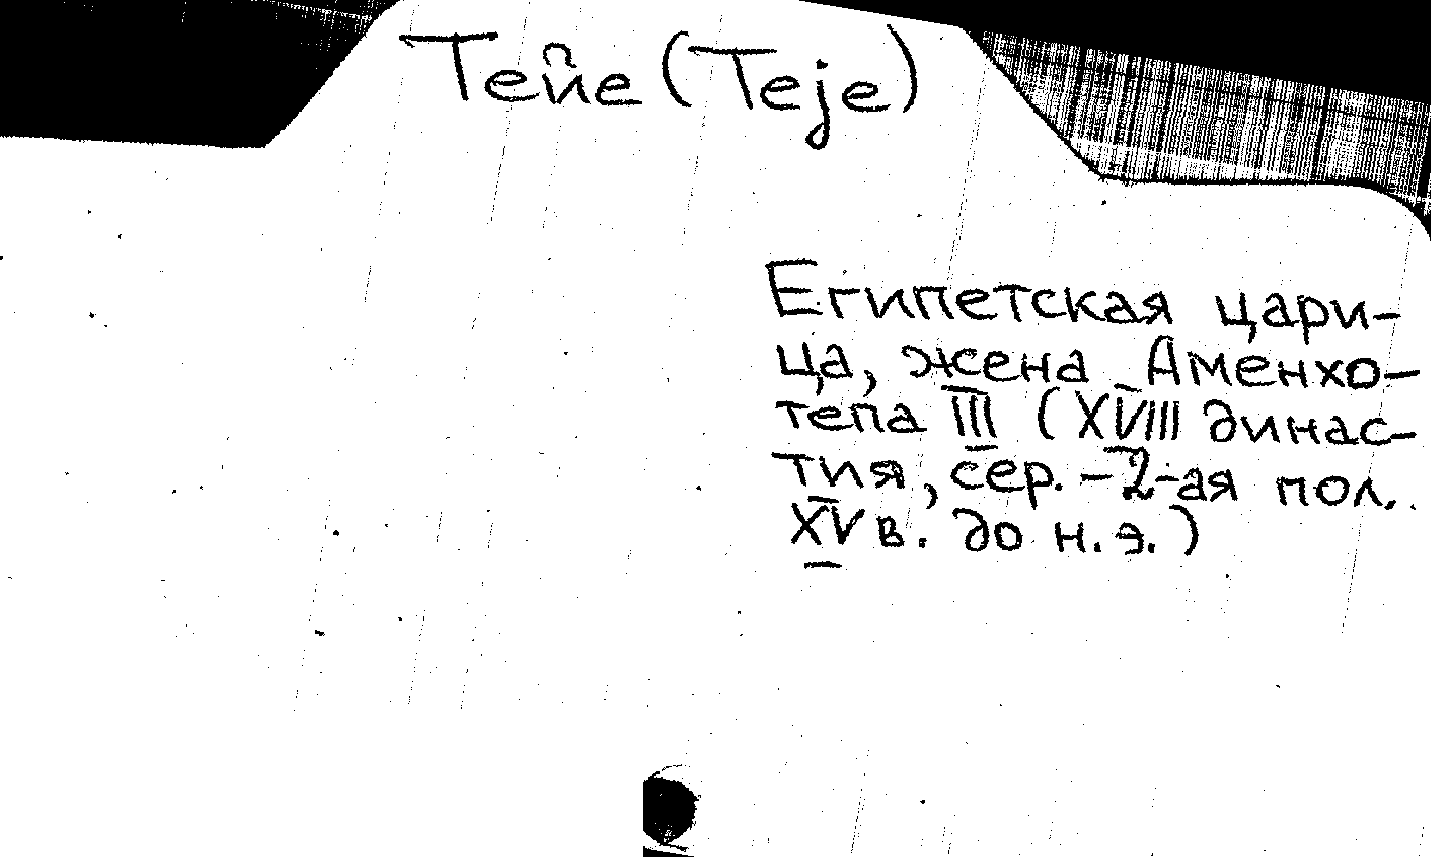 Тейе (Teje)
Египетская цари-
ца, жена Аменхо-
тепа III (XVIII динас-
тия, сер. - 2-ая пол.
XV в. до н.э.)